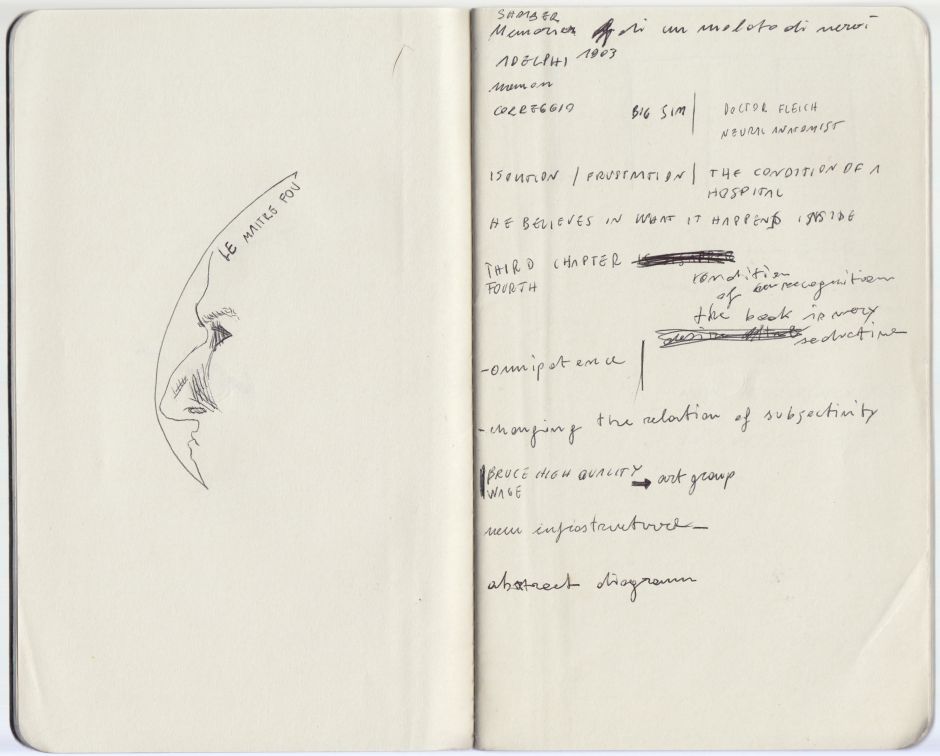 LE MAITRE FOU
Memorie di un malato di nervi
ADELPHI 1903
CORREGGIO BIG SIM | DOCTOR FLEICH
NEURAL ANATOMIST
ISOLTION / FRUSTRATION | THE CONDITION OF A
HOSPITAL
HE BELIEVES IN WHAT IT HAPPENS INSIDE
THIRD CHAPTER
FOURTH
condition
of
the book is very
seductive
-omnipotence |
-changing the relation of subjectivity
BRUCE HIGH QUALITY → art group
WAGE
new infrastructure_
abstract diagram